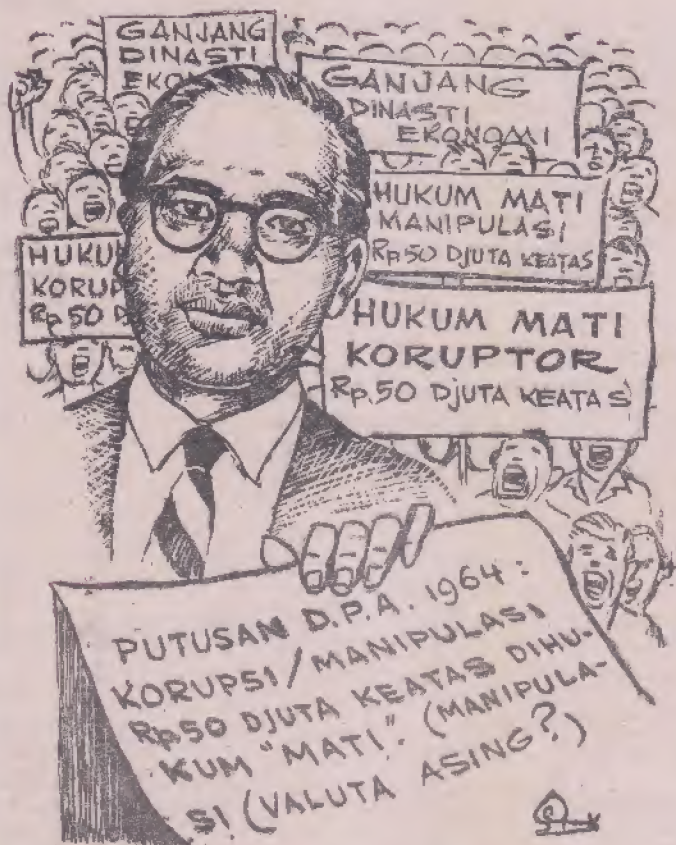 GANJANG
DINASTI
GANJANG
DINASTI
EKONOMI
HUKUM MATI
MANIPULASI
Rp50 DJUTA KEATAS
KORUP
Rp50
HUKUM MATI
KORUPTOR
Rp.50 DjUTA KEATAS
PUTUSAN D.P.A. 1964:
KORUPSI/MANIPULASI
Rp50 DJUTA KEATAS DIHU-
KUM "MATI". (MANIPULA-
SI (VALUTA ASING?)